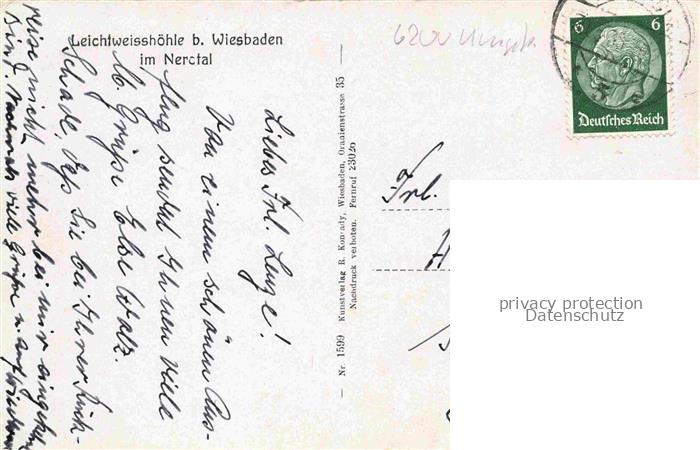 Leichtweisshöhle b. Wiesbaden
im Nerotal
6200 
6 6
Deutsches Reich
Liebes Frl. Lenze!
Von einem schönen Aus-
flug sendet Ihnen viele
lb. Grüße Else Walz.
Schade, daß Sie bei Ihrer Rück-
reise nicht mehr bei mir eingekehrt
sind. Nochmals viele Grüße u. auf
Nr. 1599 Kunstverlag R. Konrady, Wiesbaden, Oranienstrasse 35
Nachdruck verboten. Fernruf 23020
Frl.
privacy protection
Datenschutz